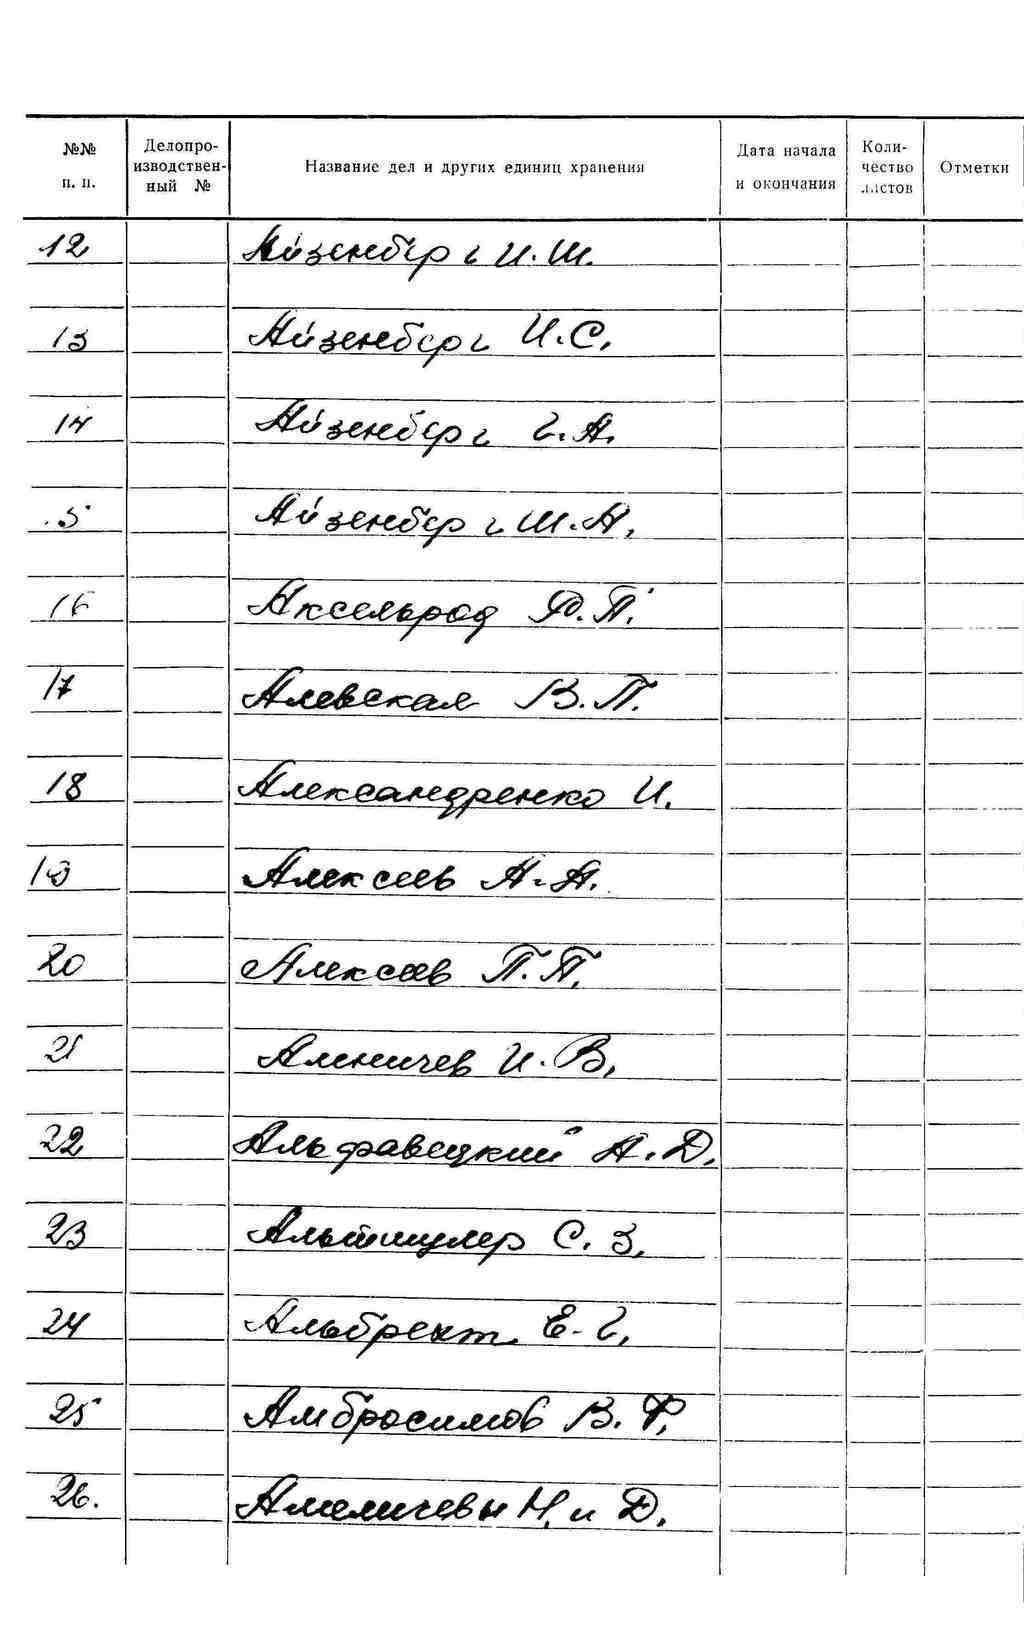 №№ п. п. Делопро-изводствен-ный № Название дел и других единиц хранения Дата начала и окончания Коли-чество листов Отметки
12 Айзенберг И. Ш.
13 Айзенберг И. С.
14 Айзенберг Г. А.
15 Айзенберг Ш. А.
16 Аксельрод Ф. П.
17 Алевская В. П.
18 Александренко И.
19 Алексеев А. А.
20 Алексеев П. П.
21 Аленичев И. В.
22 Альфавецкий А. Д.
23 Альтшулер С. З.
24 Альбрехт Е. Г.
25 Амбросимов В. Ф.
26. Амеличевы Н. и Д.